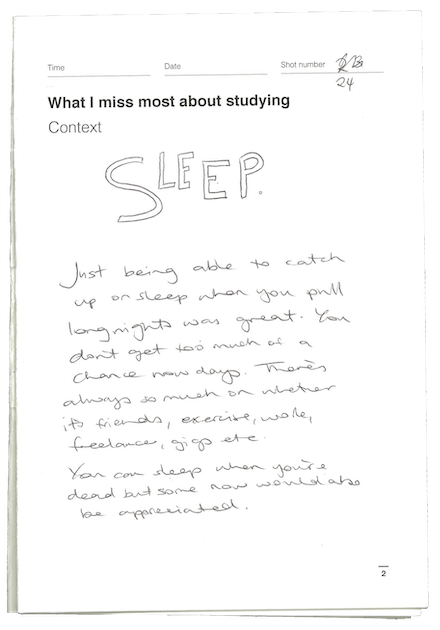 Time Date Shot number
24
What I miss most about studying
Context
SLEEP.
Just being able to catch
up on sleep when you pull
long nights was great. You
don't get too much of a
chance now days. There's
always so much on whether
it's friends, exercise, work,
freelance, gigs etc.
You can sleep when you're
dead but some now would also
be appreciated.
2